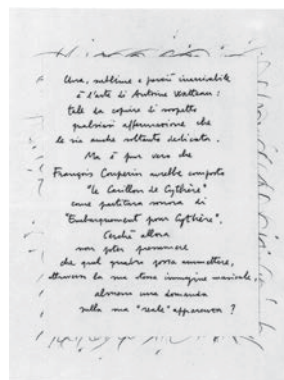 sublime e perciò
è l'arte di Antoine Watteau:
tale da coprire di sospetto
qualsiasi affermazione che
le sia anche soltanto dedicata.
Ma è pur vero che
François Couperin avrebbe composto
"Le Carillon de Cythère"
come partitura sonora di
"Embarquement pour Cythère".
Perché allora
non poter presumere
che quel quadro possa ammettere,
attraverso la sua stessa immagine musicale,
almeno una domanda
sulla sua "reale" apparenza?